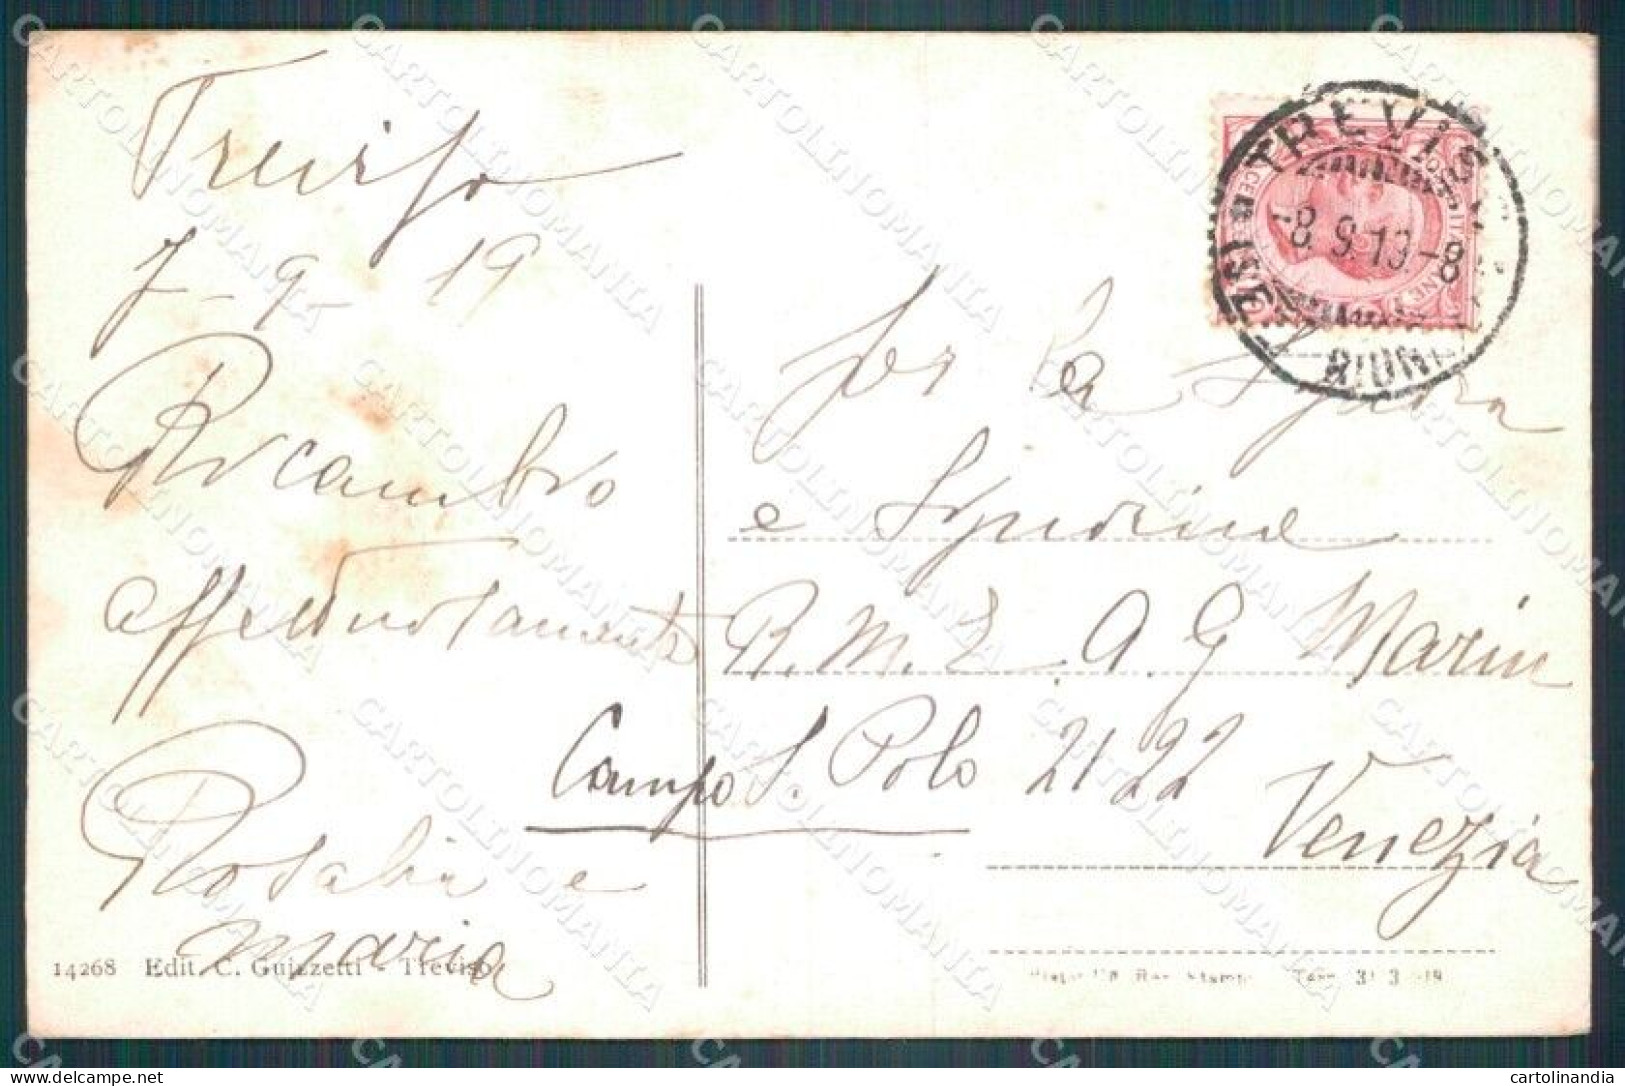 Treviso
7-9-19
Ricambio
affettuosamente
Rosalia e
Maria
Per la Signora
e Signorine
R. M. E. A. G Marin
Campo S. Polo 2122
Venezia
TREVISO
8.9.19.-8
RIUN
14268 Edit. C. Guizzetti - Treviso
31 3
CARTOLINOMANIA
Delcampe.net
cartolinandia